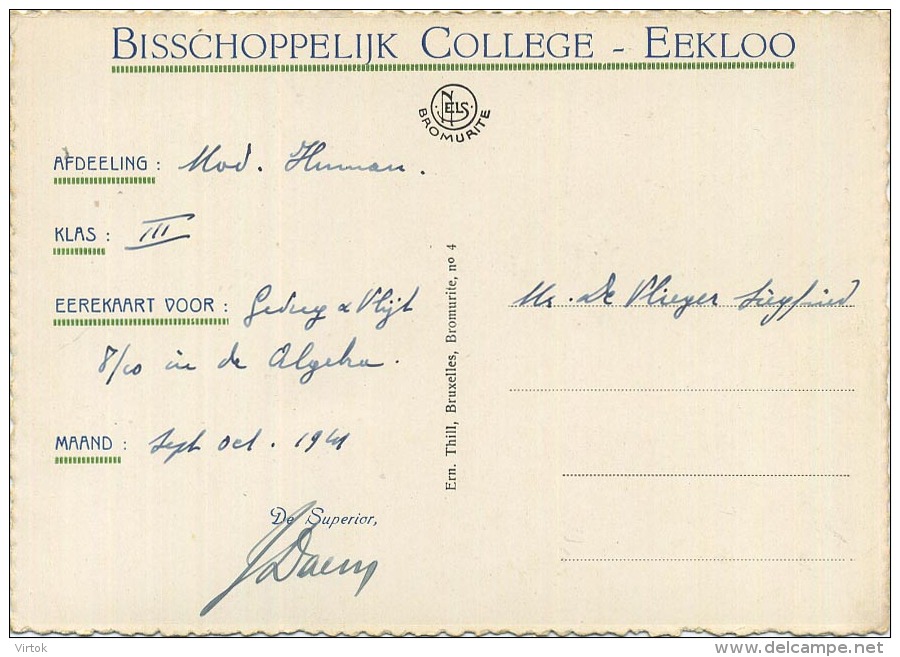 BISSCHOPPELIJK COLLEGE - EEKLOO
NELS
BROMURITE
AFDEELING : Mod. Human.
KLAS : III
EEREKAART VOOR : Gedrag & Vlijt
8/10 in de Algebra.
MAAND : Sept Oct. 1941
De Superior,
J Daem
Ern. Thill, Bruxelles, Bromurite, nº 4
Mr. De Vlieger Siegfried
Virtok
delcampe.net